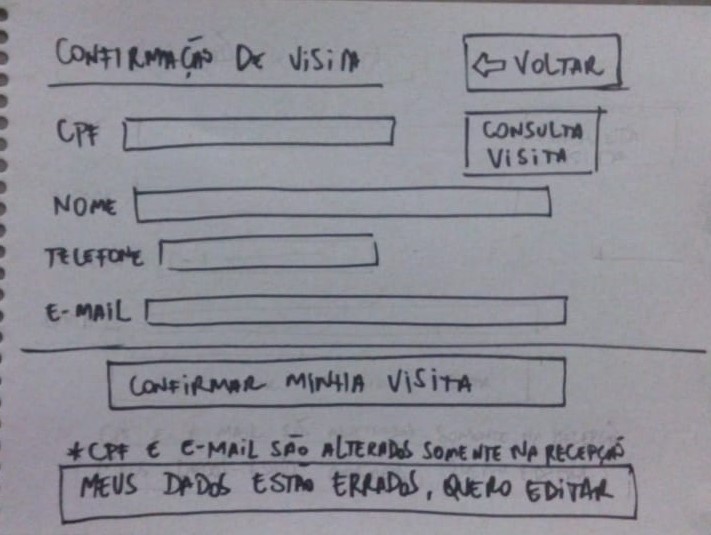 CONFIRMAÇÃO DE VISITA
VOLTAR
CPF
CONSULTA
VISITA
NOME
TELEFONE
E-MAIL
CONFIRMAR MINHA VISITA
*CPF E E-MAIL SÃO ALTERADOS SOMENTE NA RECEPÇÃO
MEUS DADOS ESTÃO ERRADOS, QUERO EDITAR